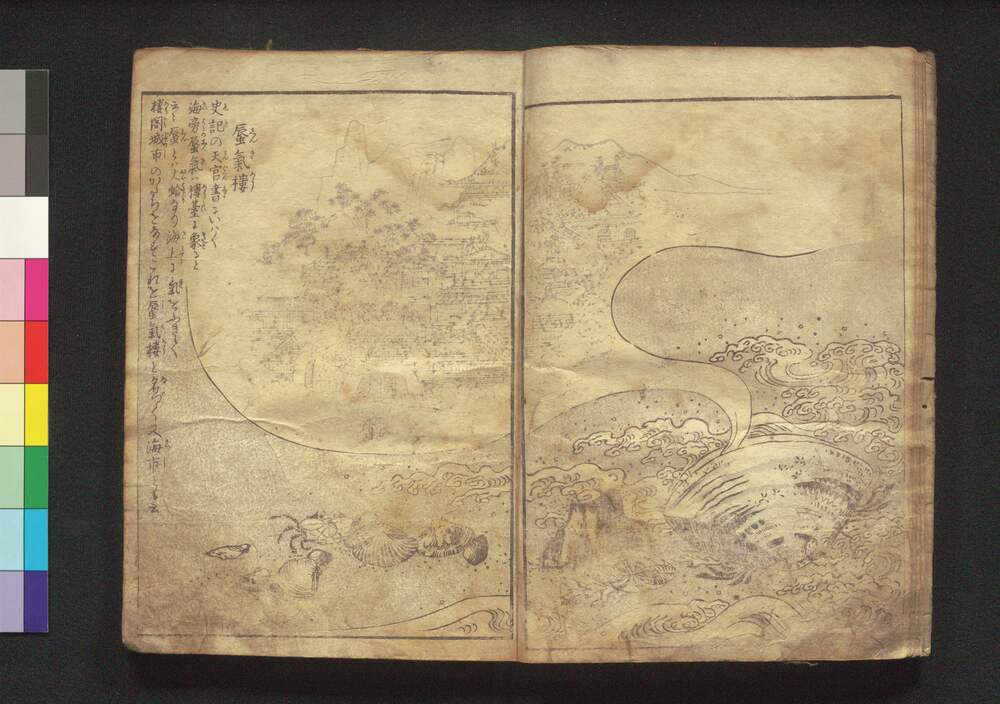 蜃氣樓
史記の天官書にいはく
海旁蜃氣は樓臺に象ると
云々蜃とは大蛤なり海上に氣をふきて
樓閣城市のかたちをなすこれを蜃氣樓と名づく又海市とも云